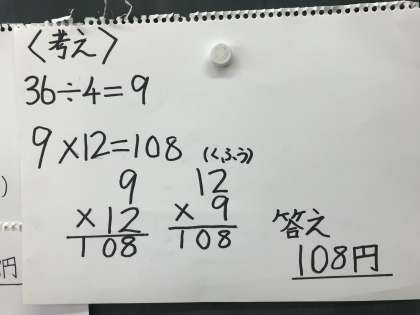 〈考え〉
36÷4=9
9×12=108
(くふう)
9
×12
108
12
×9
108
答え
108円
円